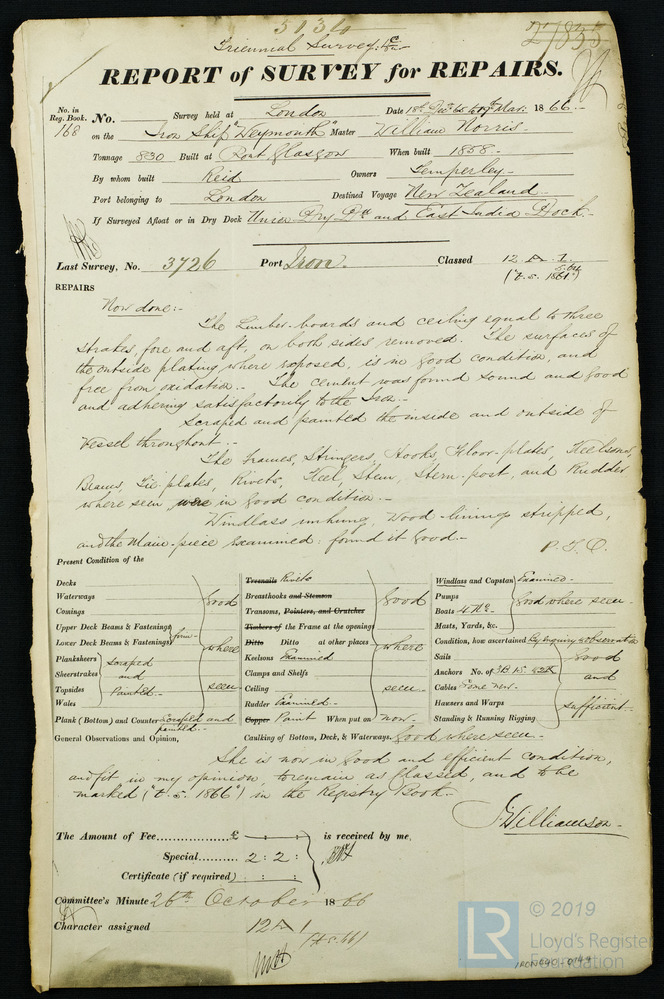 Triennial Survey &c
REPORT of SURVEY for REPAIRS.
No. in Reg. Book. No. Survey held at London Date 18th Decr 65 to 1866
168 on the Iron Ship "Weymouth" Master William Norris
Tonnage 830 Built at Port Glasgow When built 1858
By whom built Reid Owners Temperley
Port belonging to London Destined Voyage New Zealand
If Surveyed Afloat or in Dry Dock Union Dry Dk and East India Dock
Last Survey, No. 3726 Port Iron Classed 12 A 1
REPAIRS
Now done:-
The Limber-boards and ceiling equal to three
strakes, fore and aft, on both sides removed. The surfaces of
the outside plating, where exposed, is in good condition, and
free from oxidation. The cement was found sound and good
and adhering satisfactorily to the Iron.
Scraped and painted the inside and outside of
Vessel throughout.
The Frames, Stringers, Hooks, Floor-plates, Keelsons,
Beams, Tie plates, Rivets, Keel, Stem, Stern-post, and Rudder
where seen were in good condition.
Windlass unhung, wood-linings stripped,
and the Main-piece examined: found it good.
P.T.O.
Present Condition of the
Decks
Waterways
Comings
Upper Deck Beams & Fastenings
Lower Deck Beams & Fastenings
firm
Planksheers Scraped
Sheerstrakes and
Topsides Painted
Wales
good where seen
Plank (Bottom) and Counter Scraped and painted
Treenails Rivets
Breasthooks and Stemson
Transoms, Pointers, and Crutches
Timbers of the Frame at the opening
Ditto Ditto at other places
Keelsons Examined
Clamps and Shelfs
Ceiling
Rudder Examined
good where seen
Copper Paint When put on now
Windlass and Capstan Examined
Pumps
Boats 4 No
Masts, Yards, &c.
Good where seen
Condition, how ascertained By Enquiry & observation
Sails
Anchors No. of 3B. 1S. 2K
Cables Some new
Hawsers and Warps
Standing & Running Rigging
Good and sufficient
General Observations and Opinion, Caulking of Bottom, Deck, & Waterways. Good where seen
She is now in good and efficient condition,
and fit in my opinion, to remain as Classed, and to be
marked ("t.s. 1866") in the Registry Book.
J Williamson
The Amount of Fee £ : : is received by me,
Special 2 : 2 :
Certificate (if required) : :
Committee's Minute 26th October 1866
Character assigned 12 A 1
LR
© 2019
Lloyd's Register
Foundation